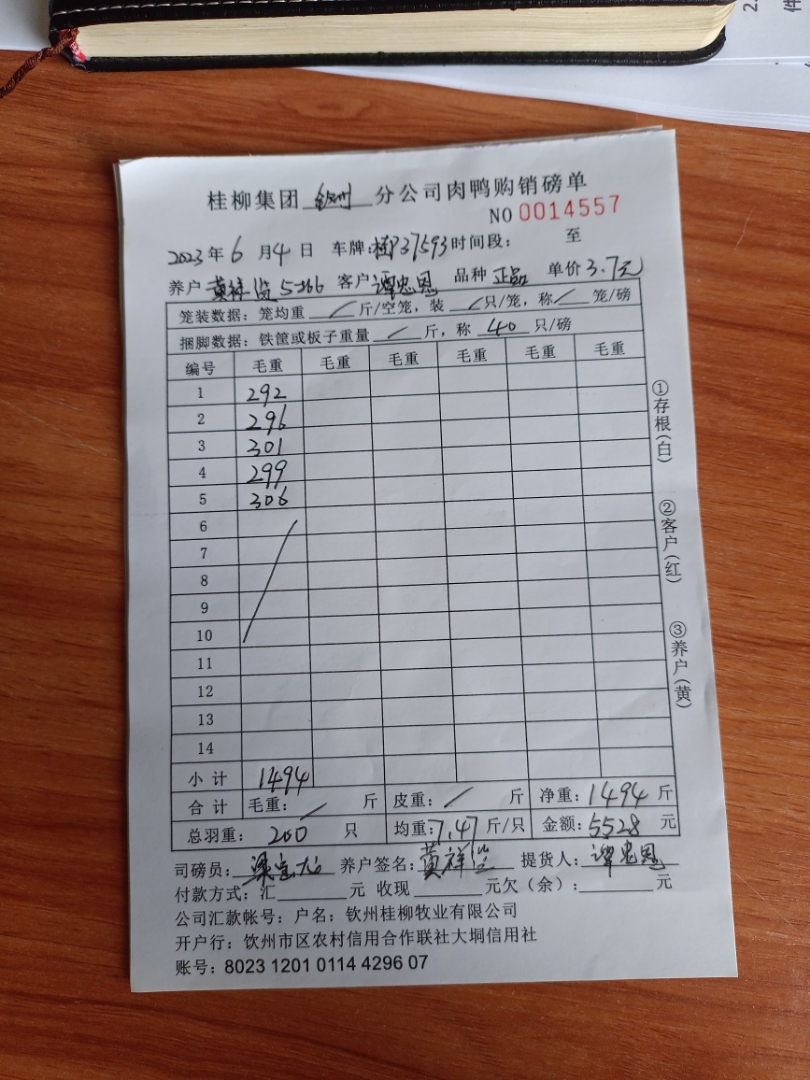 桂柳集团 钦州 分公司肉鸭购销磅单
NO 0014557
2023年 6 月 4 日 车牌:柳37593 时间段: 至
养户 黄祥 5-266 客户 谭忠恩 品种 正品 单价 3.7元
笼装数据: 笼均重 / 斤/空笼, 装 / 只/笼, 称 / 笼/磅
捆脚数据: 铁筐或板子重量 / 斤, 称 40 只/磅
编号 毛重 毛重 毛重 毛重 毛重 毛重
1 292
2 296
3 301
4 299
5 306
6
7
8
9
10
11
12
13
14
小 计 1494
合 计 毛重: / 斤 皮重: / 斤 净重: 1494 斤
总羽重: 200 只 均重: 7.47 斤/只 金额: 5528 元
司磅员: 养户签名: 黄祥 提货人: 谭忠恩
付款方式: 汇 元 收现 元欠 (余): 元
公司汇款帐号: 户名; 钦州桂柳牧业有限公司
开户行: 钦州市区农村信用合作联社大垌信用社
账号: 8023 1201 0114 4296 07
①存根(白)
②客户(红)
③养户(黄)